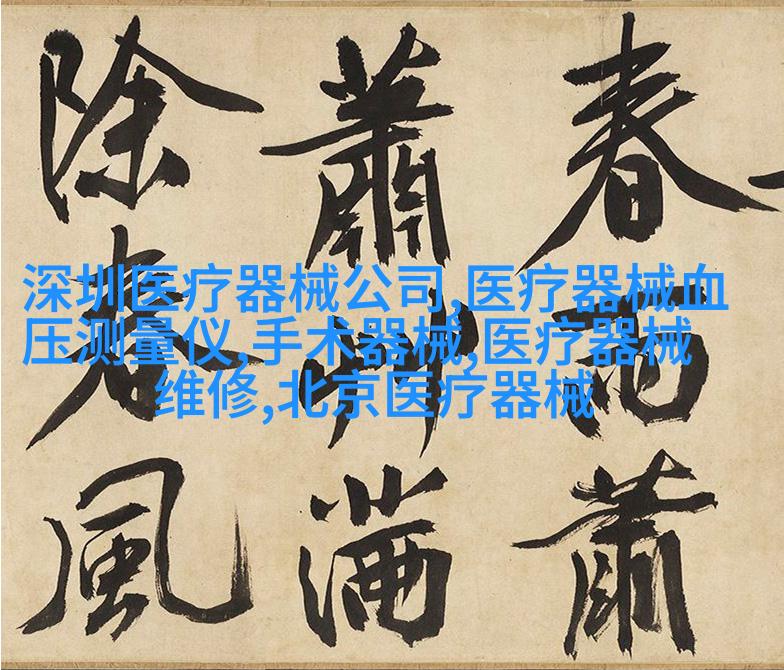 春雨蕭
蕭艸滿
除春風
深圳医疗器械公司,医疗器械血
压测量仪,手术器械,医疗器械
维修,北京医疗器械